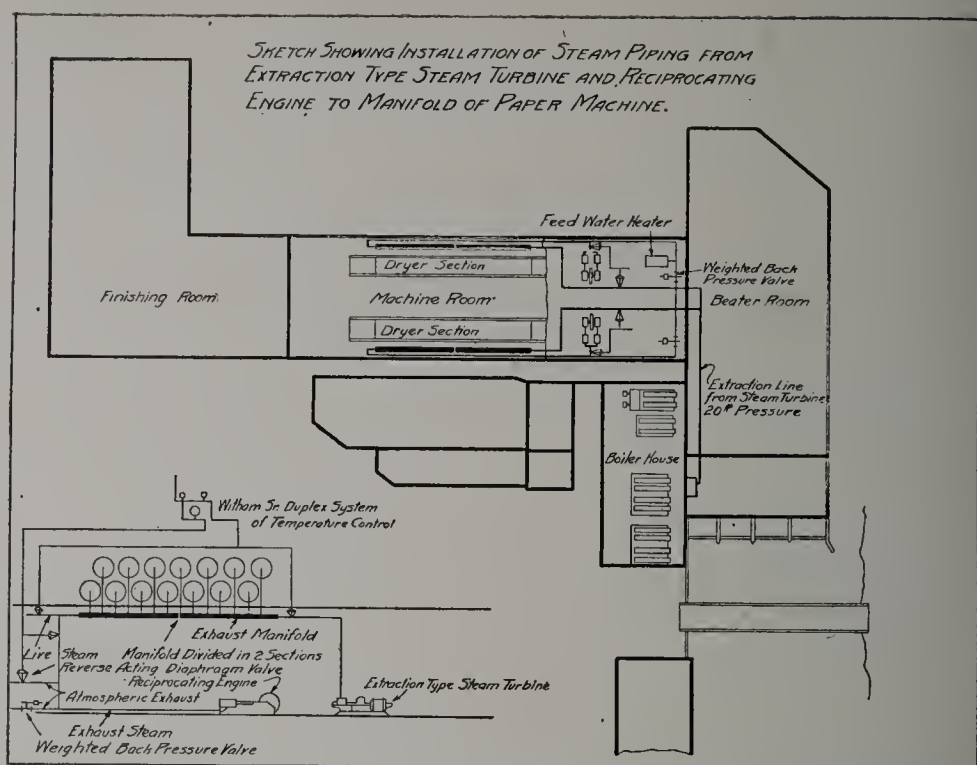 SKETCH SHOWING INSTALLATION OF STEAM PIPING FROM
EXTRACTION TYPE STEAM TURBINE AND RECIPROCATING
ENGINE TO MANIFOLD OF PAPER MACHINE.
Feed Water Heater
Weighted Back
Pressure Valve
Beater Room
Dryer Section
Machine Room
Finishing Room
Dryer Section
Extraction Line
from Steam Turbine
20# Pressure
Boiler House
Witham Sr. Duplex System
of Temperature Control
Exhaust Manifold
Live Steam
Manifold Divided in 2 Sections
Reverse Acting Diaphragm Valve
Reciprocating Engine
Extraction Type Steam Turbine
Atmospheric Exhaust
Exhaust Steam
Weighted Back Pressure Valve